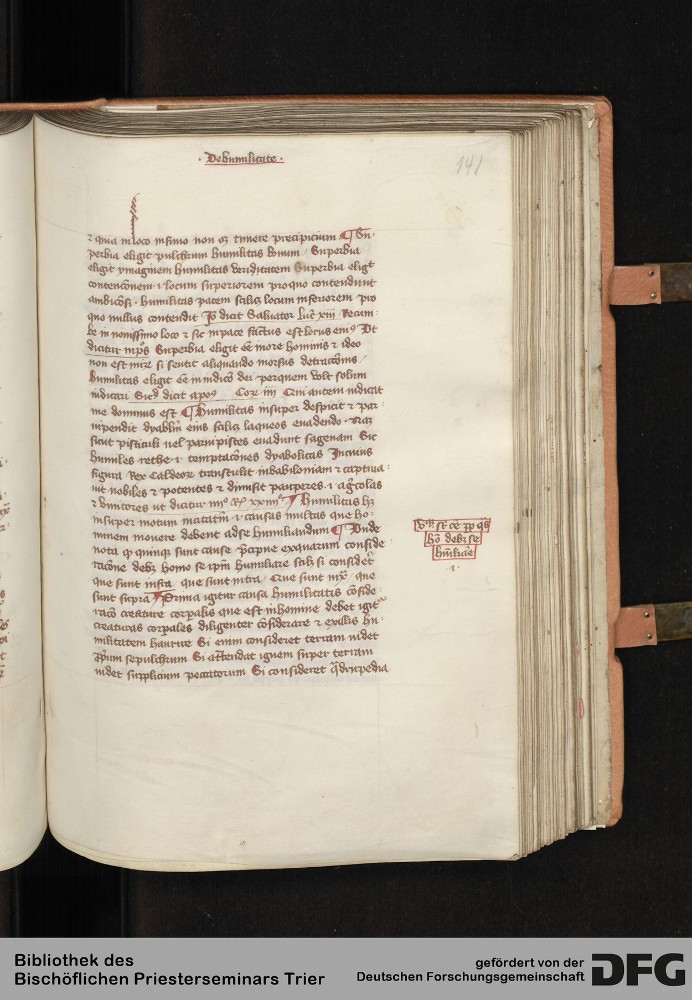 · De humilitate ·
141
⁊ quia in loco infimo non ē timere precipicium ¶ Su-
perbia eligit pulchrum humilitas bonum / Superbia
eligit ymaginem humilitas veritatem Superbia eligt
contencōnem ·i· locum superiorem pro quo contendunt
ambicōsi · humilitas pacem scilicꝫ locum inferiorem pro
quo nullus contendit Jō dicit Saluator luc̄ xiiii Recum-
be in nouissimo loco ⁊ sic in pace factus est locus eiꝰ Vt
dicitur in pō Superbia eligit eē in ore hominis ⁊ ideo
non est mirū si sentit aliquando morsus detractōnis /
humilitas eligit eē in iudicō dei per quem volt solum
iudicari Sicud dicit apoꝰ Cor iiii Qui autem iudicat
me dominus est ¶ Humilitas insuper despicit ⁊ par-
uipendit dyablm̄ eius scilicꝫ laqueos euadendo ·
sicut pisticuli uel parui pistes euadunt sagenam Sic
humiles rethe ·i· temptacōnes dyabolicas In cuius
figura Rex Caldeorꝫ transtulit in babiloniam ⁊ captiua-
uit nobiles ⁊ potentes ⁊ dimisit pauperes ·i· ag̃colas
⁊ vinitores ut dicitur iiiiᵒ Rꝫ xxiiiiᵒ ¶ Humilitas hꝫ
insuper motum ·i· causas multas que ho-
minem mouere debent ad se humiliandum ¶ Vnde
nota qꝫ quinqꝫ sunt cause p̄cipue ex quarum conside-
racōne debꝫ homo se ipm̄ humiliare scilꝫ si consideret
que sunt infra que sunt intra Que sunt iuxͣ que
sunt supra ¶ Prima igitur causa humilitatis cōside-
racō creature corp̄alis que est in homine debet igitᷣ
creaturas corpales diligenter cōsiderare ⁊ ex illis hu-
militatem haurire Si enim consideret terram uidet
ꝓprium sepulchrum Si attendat ignem super terram
uidet supplicium peccatorum Si consideret q̃drupedia
V sūt cē ꝓp q̃s
hō debꝫ se
hūiliare
·1·
Bibliothek des
Bischöflichen Priesterseminars Trier
gefördert von der
Deutschen Forschungsgemeinschaft
DFG